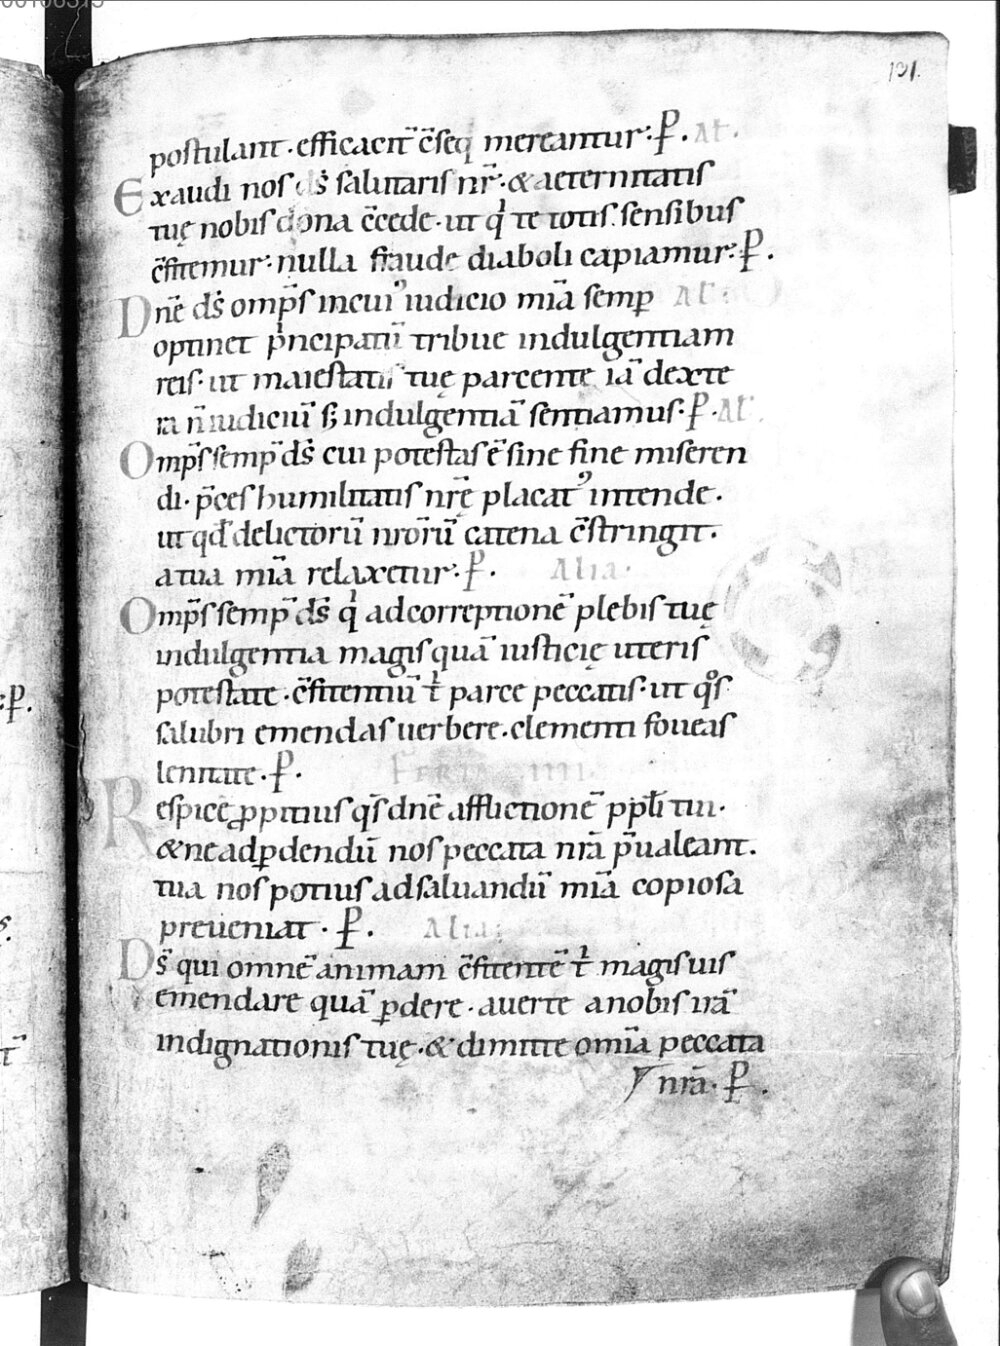 191.
postulant · efficacit̄ c̄seq̄ mereantur: P̄. Al̄.
Exaudi nos ds̄ salutaris nr̄ · & aeternitatis
tuę nobis dona c̄cede · ut qⁱ te totis sensibus
c̄fitemur: nulla fraude diaboli capiamur: P̄.
Dnē ds̄ omp̄s in cui᾽ iudicio mīa semp̄ Al̄:
optinet pⁱncipatū tribue indulgentiam
reis · ut maiestatis tuę parcente iā dexte
ra n̄ iudiciū s; indulgentiā sentiamus · P̄. Al̄.
Omp̄s semp̄ ds̄ cui potestas ē sine fine miseren
di · p̄ces humilitatis nrē placat᾽ intende ·
ut qd̄ delictorū nrōrū catena c̄stringit ·
a tua mīa relaxetur · P̄. Alia ·
Omp̄s semp̄ ds̄ qⁱ ad correptionē plebis tuę
indulgentia magis quā iusticię uteris
potestate · c̄fitentiū tⁱ parce peccatis · ut qᵒs
salubri emendas uerbere · clementi foueas
lenitate · P̄. Feria IIII
Respice ꝓpitius qs̄ dnē afflictionē ppl̄i tui ·
& ne ad ꝑdendū nos peccata nrā p̄ualeant.
tua nos potius ad saluandū mīa copiosa
preueniat · P̄. Alia:
Ds̄ qui omnē animam c̄fitentē tⁱ magis uis
emendare quā ꝑdere · auerte a nobis irā
indignationis tuę · & dimitte omīa peccata
nrā · P̄.